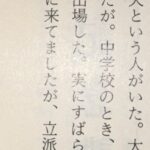 夫という人がいた。大
だが。中学校のとき、
出場した。実にすばら
に来てましたが、立派